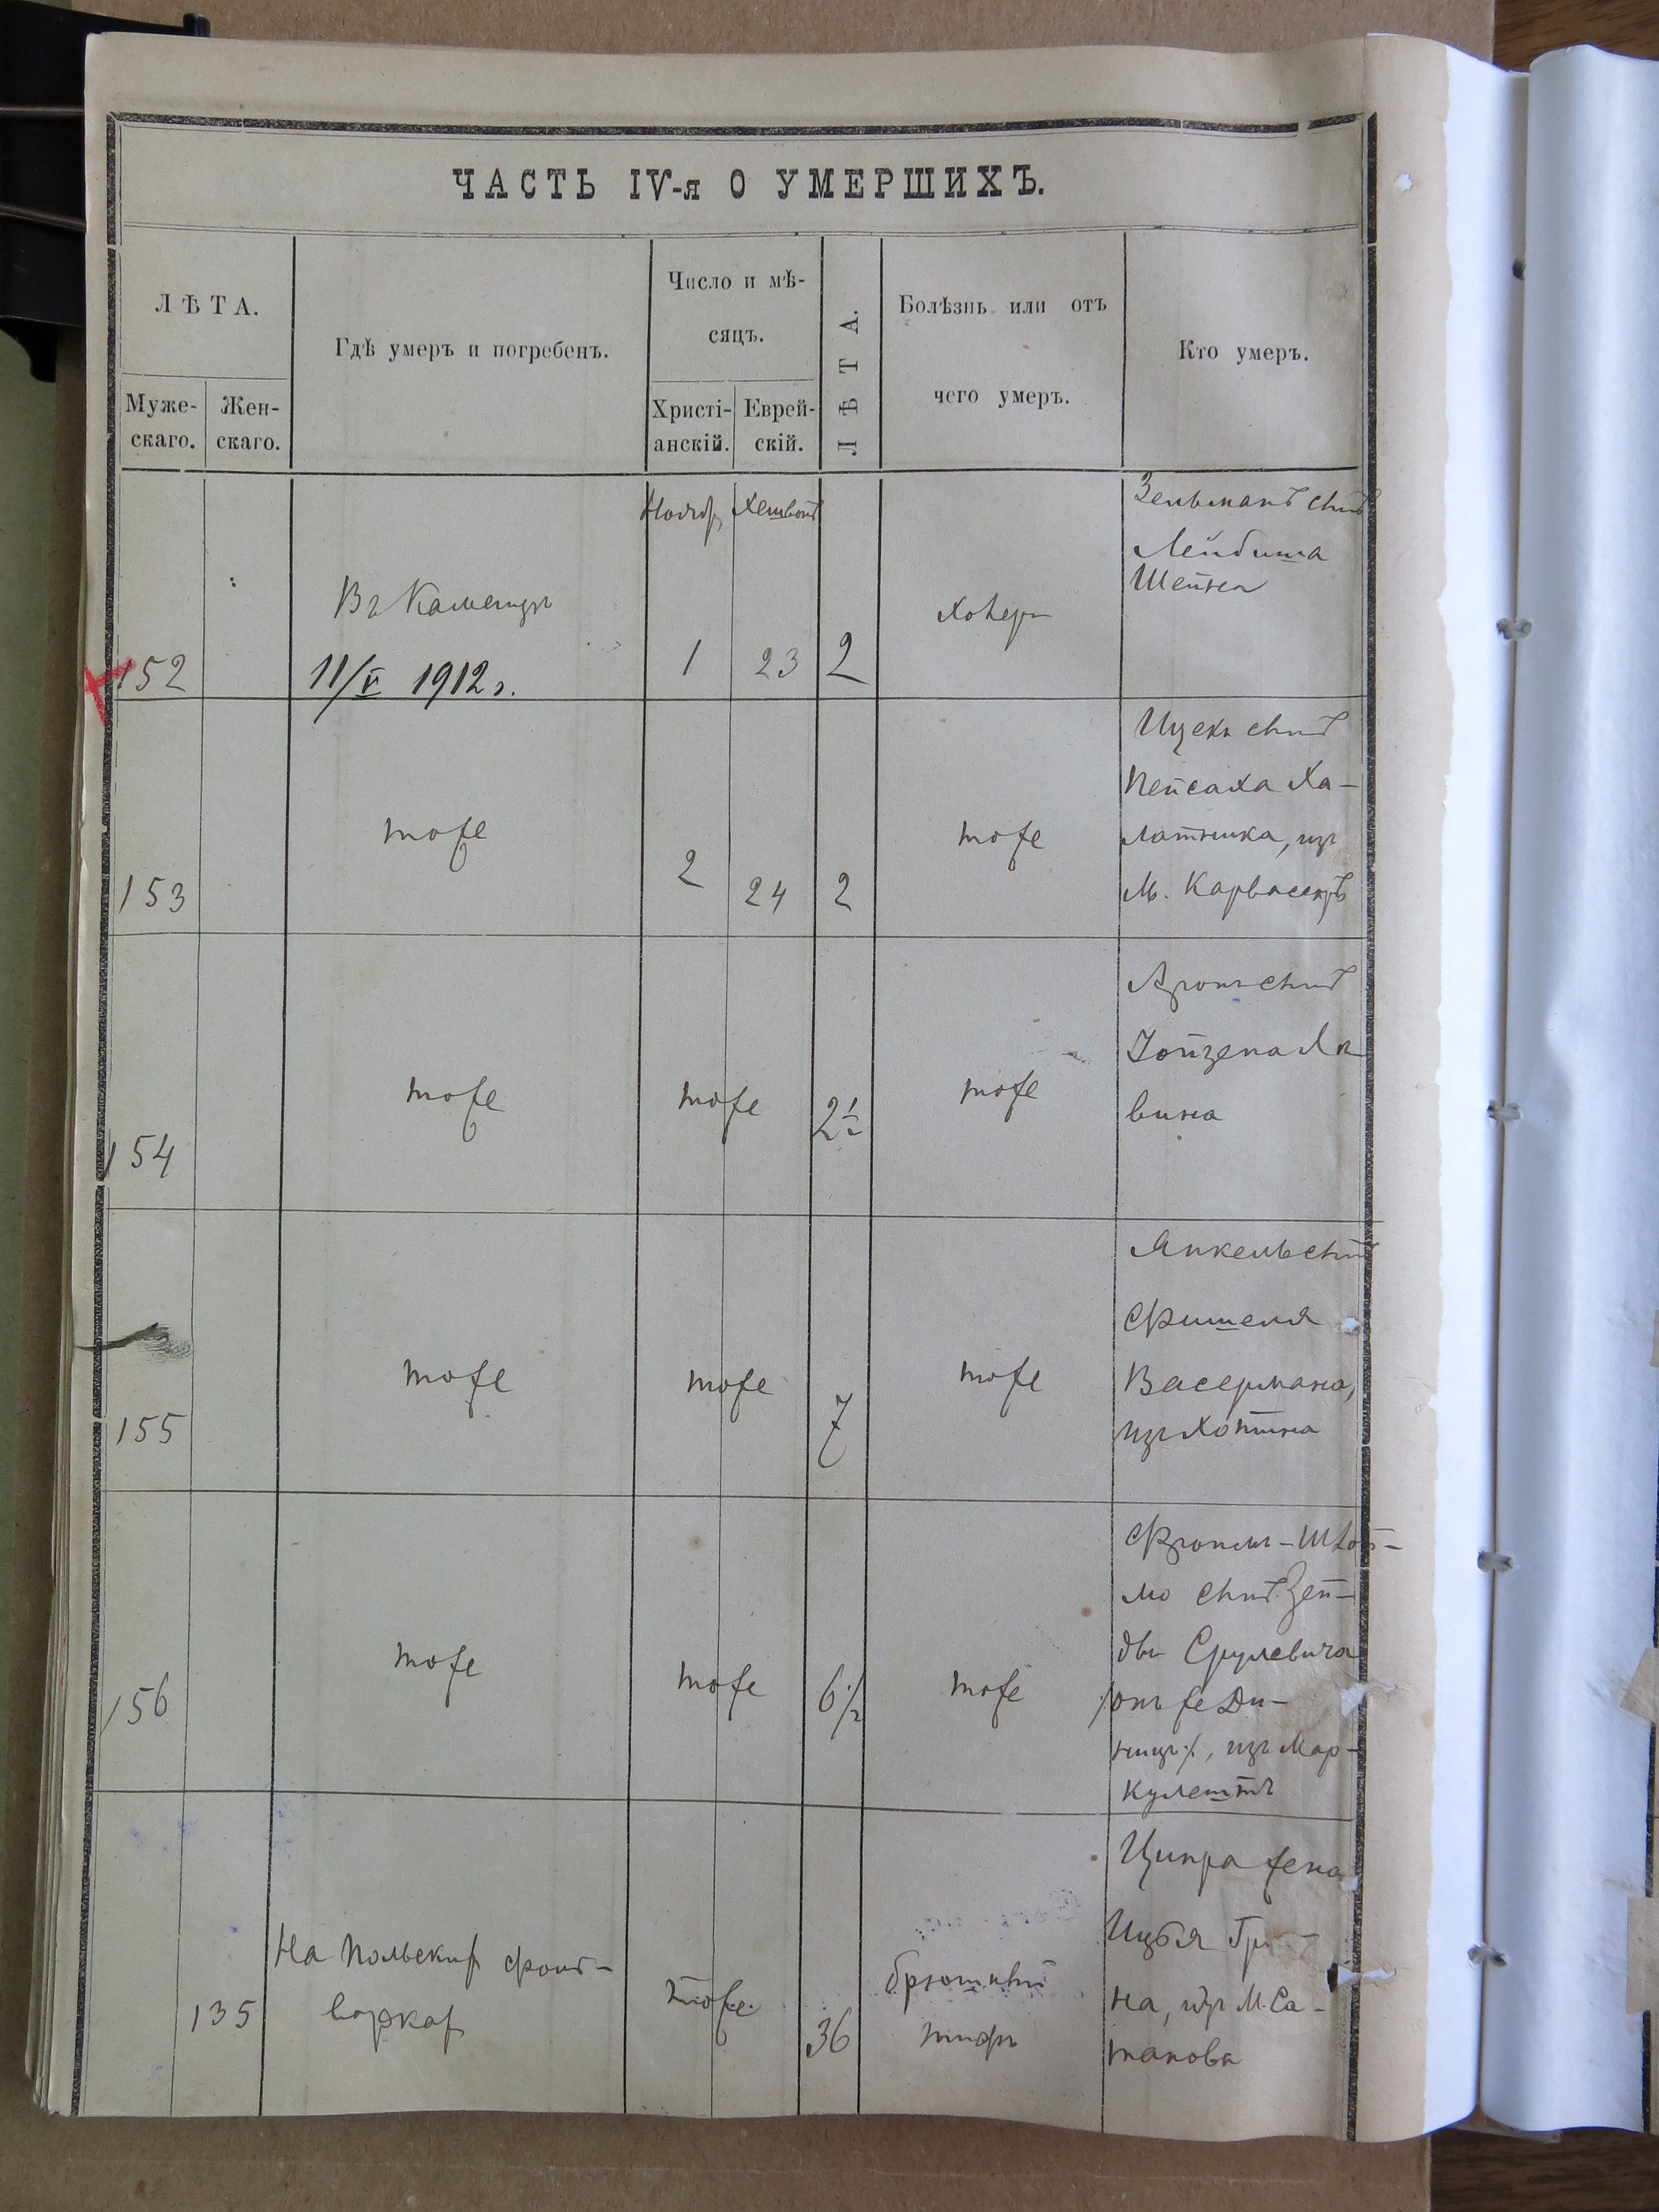 ЧАСТЬ IV-я О УМЕРШИХЪ.
ЛѢТА.
Муже-
скаго.
Жен-
скаго.
Гдѣ умеръ и погребенъ.
Число и мѣ-
сяцъ.
Христі-
анскій.
Еврей-
скій.
ЛѢТА.
Болѣзнь или отъ
чего умеръ.
Кто умеръ.
152
Въ Каменцѣ
11/V 1912 г.
Ноябр
1
23
2
Холера
Зельманъ сынъ
Лейбиша
Штейна
153
тоже
2
24
2
тоже
Ицекъ сынъ
Пейсаха Ха-
латника, изъ
м. Карвасеръ
154
тоже
тоже
2½
тоже
сынъ
вина
155
тоже
тоже
7
тоже
Янкель сынъ
Фишеля
Васермана,
изъ Хотина
156
тоже
тоже
6½
тоже
Фроимъ-Шлой-
мо сынъ Зей-
ды Срулевича
/онъ же Ди-
ницъ/, изъ Мар-
кулештъ
135
На Польских фоль-
варках
тоже
36
брюшный
тифъ
Ципра жена
Ицъя
на, изъ м. Са-
танова